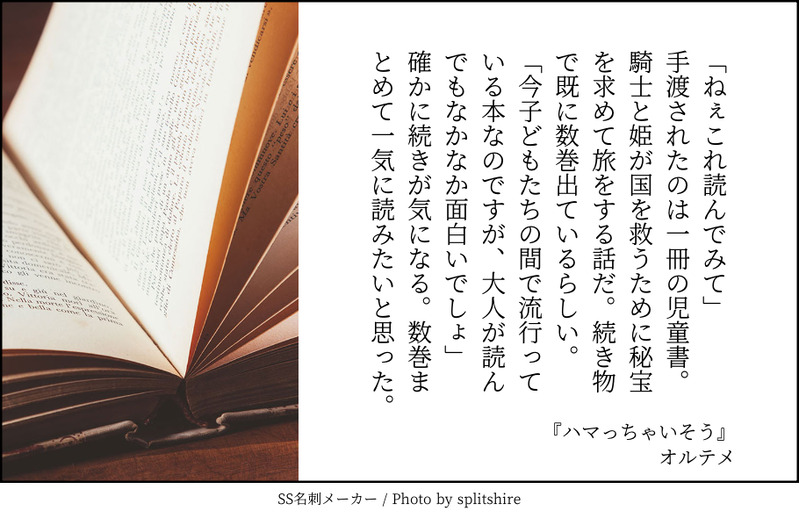 「ねぇこれ読んでみて」
手渡されたのは一冊の児童書。
騎士と姫が国を救うために秘宝
を求めて旅をする話だ。続き物
で既に数巻出ているらしい。
「今子どもたちの間で流行って
いる本なのですが、大人が読ん
でもなかなか面白いでしょ」
確かに続きが気になる。数巻ま
とめて一気に読みたいと思った。
『ハマっちゃいそう』
オルテメ
SS名刺メーカー / Photo by splitshire